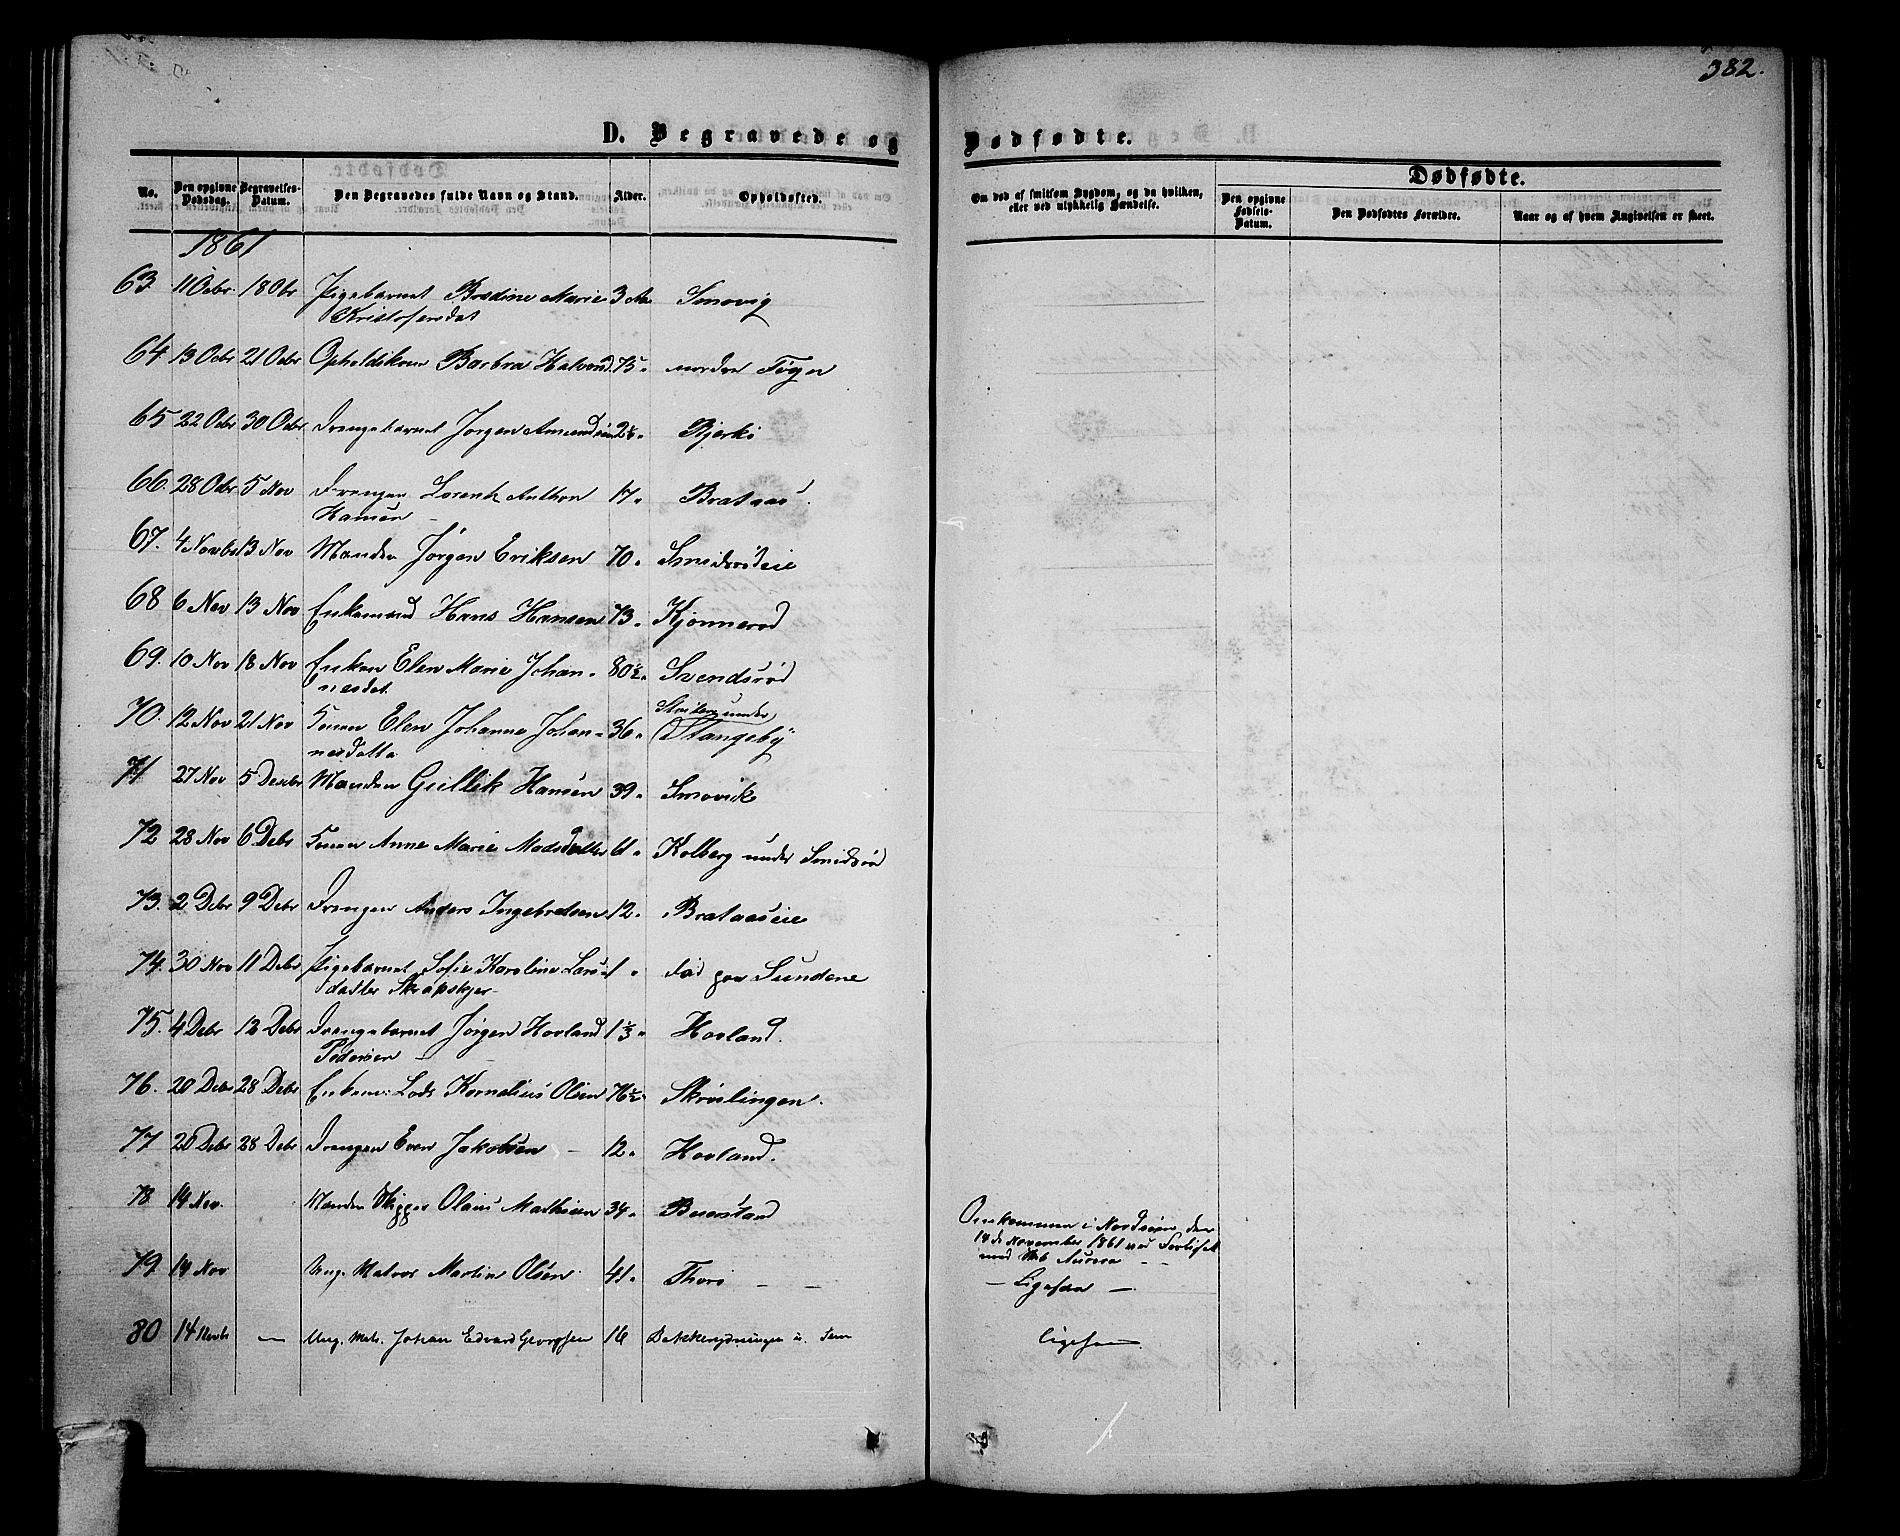 382.
D. Begravede og Dødfødte.
No. Den opgivne Dødsdag. Begravelses-Datum. Den Begravedes fulde Navn og Stand. Alder. Opholdssted. Om død af smitsom Sygdom, og da hvilken, eller ved ulykkelig Hændelse. Dødfødte. Den opgivne Fødsels-Datum. Den Dødfødtes Forældre. Naar og af hvem Angivelsen er skeet.
1861
63 11 Octbr. 18 Obr Pigebarnet Bredine Marie 3 Smovig
Kristofersdat
64 13 Octbr 21 Octbr Barbra Halvorsd 75 nordre Føgen
65 22 Octbr 30 Octbr Drengebarnet Jørgen Amundsen 2½ Bjerkø
66. 28 Octbr 5 Nov Drengen Lorentz Anthon 17 Brataas
Hansen
67. 4 Novbr 13 Nov Manden Jørgen Eriksen 70 Smidsrødeie
68 6 Nov 13 Nov Enkemand Hans Hansen 73 Kjønnerød
69. 10 Nov 18 Nov Enken Elen Marie Johan- 80½ Svendsrød
nesdat
70. 12 Nov 21 Nov Konen Elen Johanne Johan- 36 under Stangeby
nesdatter
71 27 Nov 5 Decbr Manden Gullik Hansen 39 Smovik
72 28 Nov 6 Debr Konen Anne Marie Madsdatter 61 Kolberg under Smidsrød
73. 2 Debr 9 Debr Drengen Anders Ingebretsen 12 Brataaseie
74. 30 Nov 11 Debr Pigebarnet Sofie Karoline Lars- 1 paa Sundene
datter Skrapskjer
75. 4 Debr 12 Debr Drengebarnet Jørgen Hovland 1⅓ Hovland.
Pedersen
76. 20 Debr 28 Debr Enkem: Lods Kornelius Olsen 76½ Skrøslingen.
77 20 Debr 28 Debr Drengen Even Jakobsen 12 Hovland.
78 14 Nov. Manden Skipper Olaus Mathisen 34 Buerstad Omkommen i Nordsøen den
14de November 1861 ved Forliset
med Aurora
79. 14 Nov Ung. Matros Martin Olsen 41 Thorø — Ligesaa —
80 14 Novbr — Ung. Mats. Johan Edvard Georgsen 16 Bakkerydningen Ligesaa